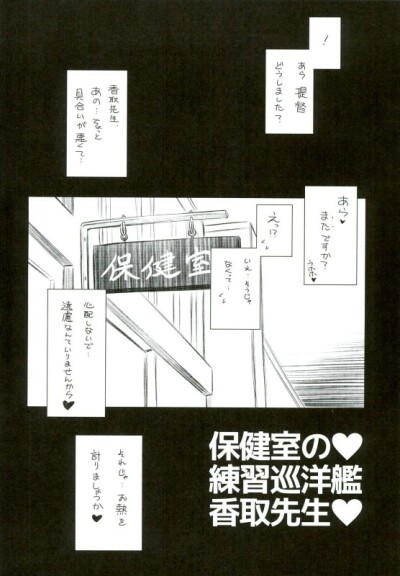 ！
あら 提督
どうしました？
香取先生、
あの…ちょっと
具合いが悪くて…
あら♥
またですか？
うふ♥
えっ！？
いえ…そうじゃ
なくて…
保健室
心配しないで…
遠慮なんていりませんから
♥
それじゃ…お熱を
計りましょうか
♥
保健室の♥
練習巡洋艦
香取先生♥